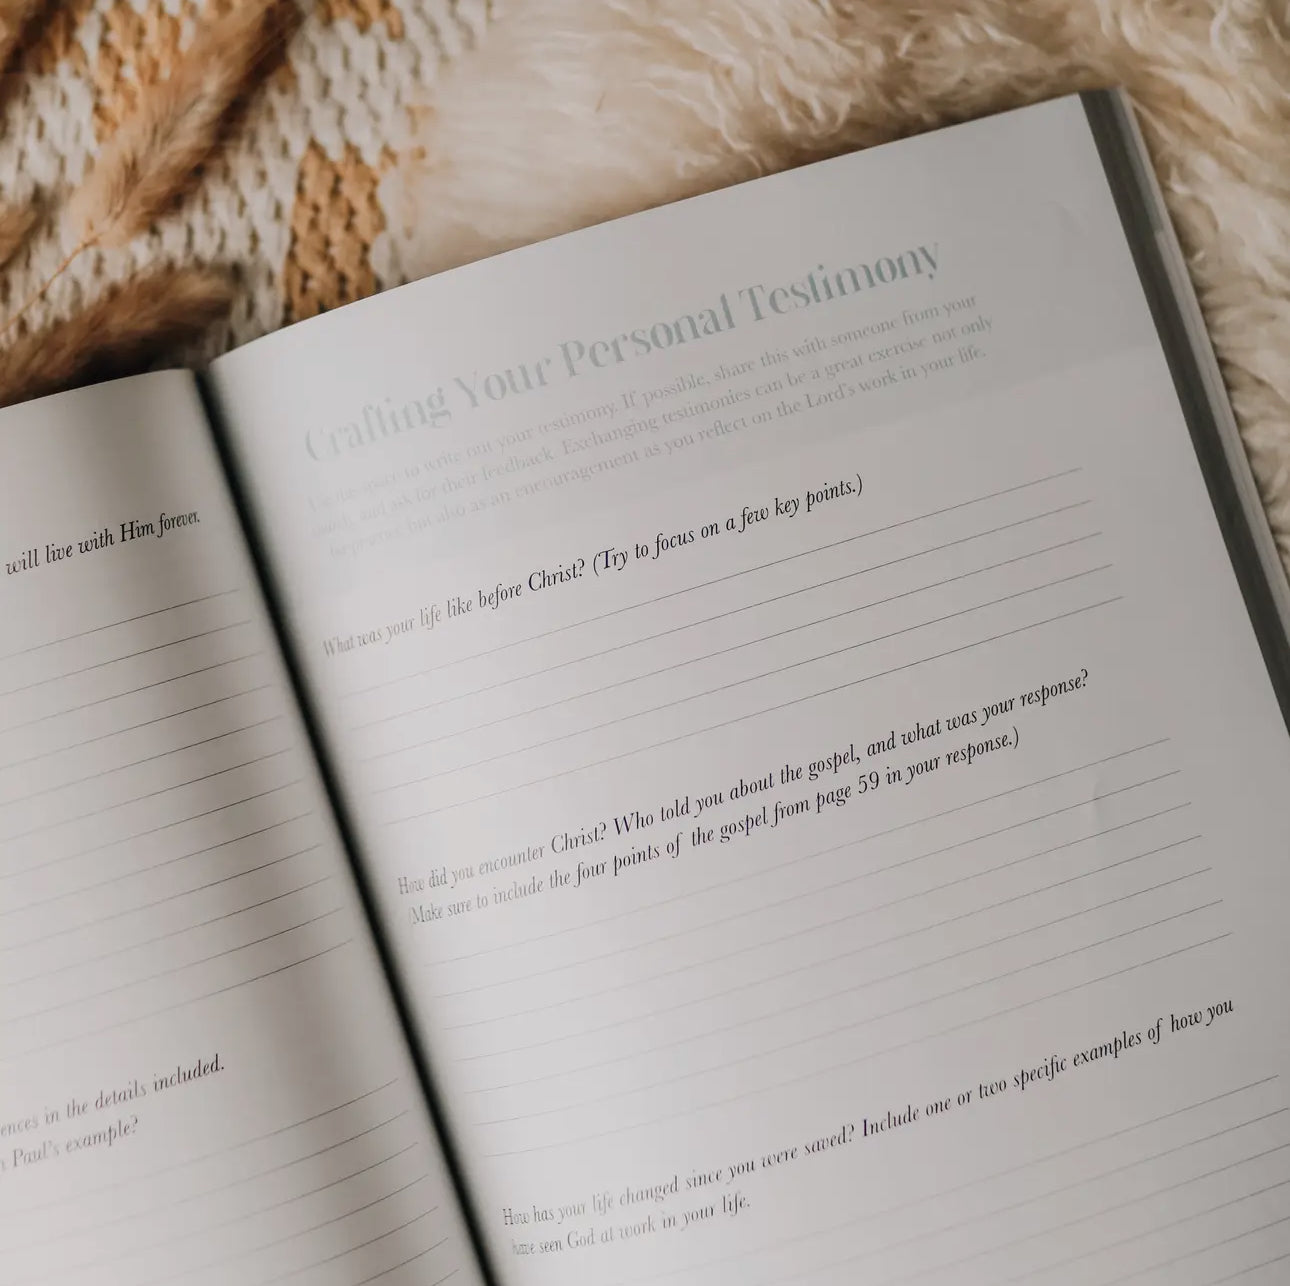 will live with Him forever.
ences in the details included.
Paul's example?
Crafting Your Personal Testimony
Use the space to write out your testimony. If possible, share this with someone from your
and ask for their feedback. Exchanging testimonies can be a great exercise not only
for practice but also as an encouragement as you reflect on the Lord's work in your life.
What was your life like before Christ? (Try to focus on a few key points.)
How did you encounter Christ? Who told you about the gospel, and what was your response?
(Make sure to include the four points of the gospel from page 59 in your response.)
How has your life changed since you were saved? Include one or two specific examples of how you
have seen God at work in your life.